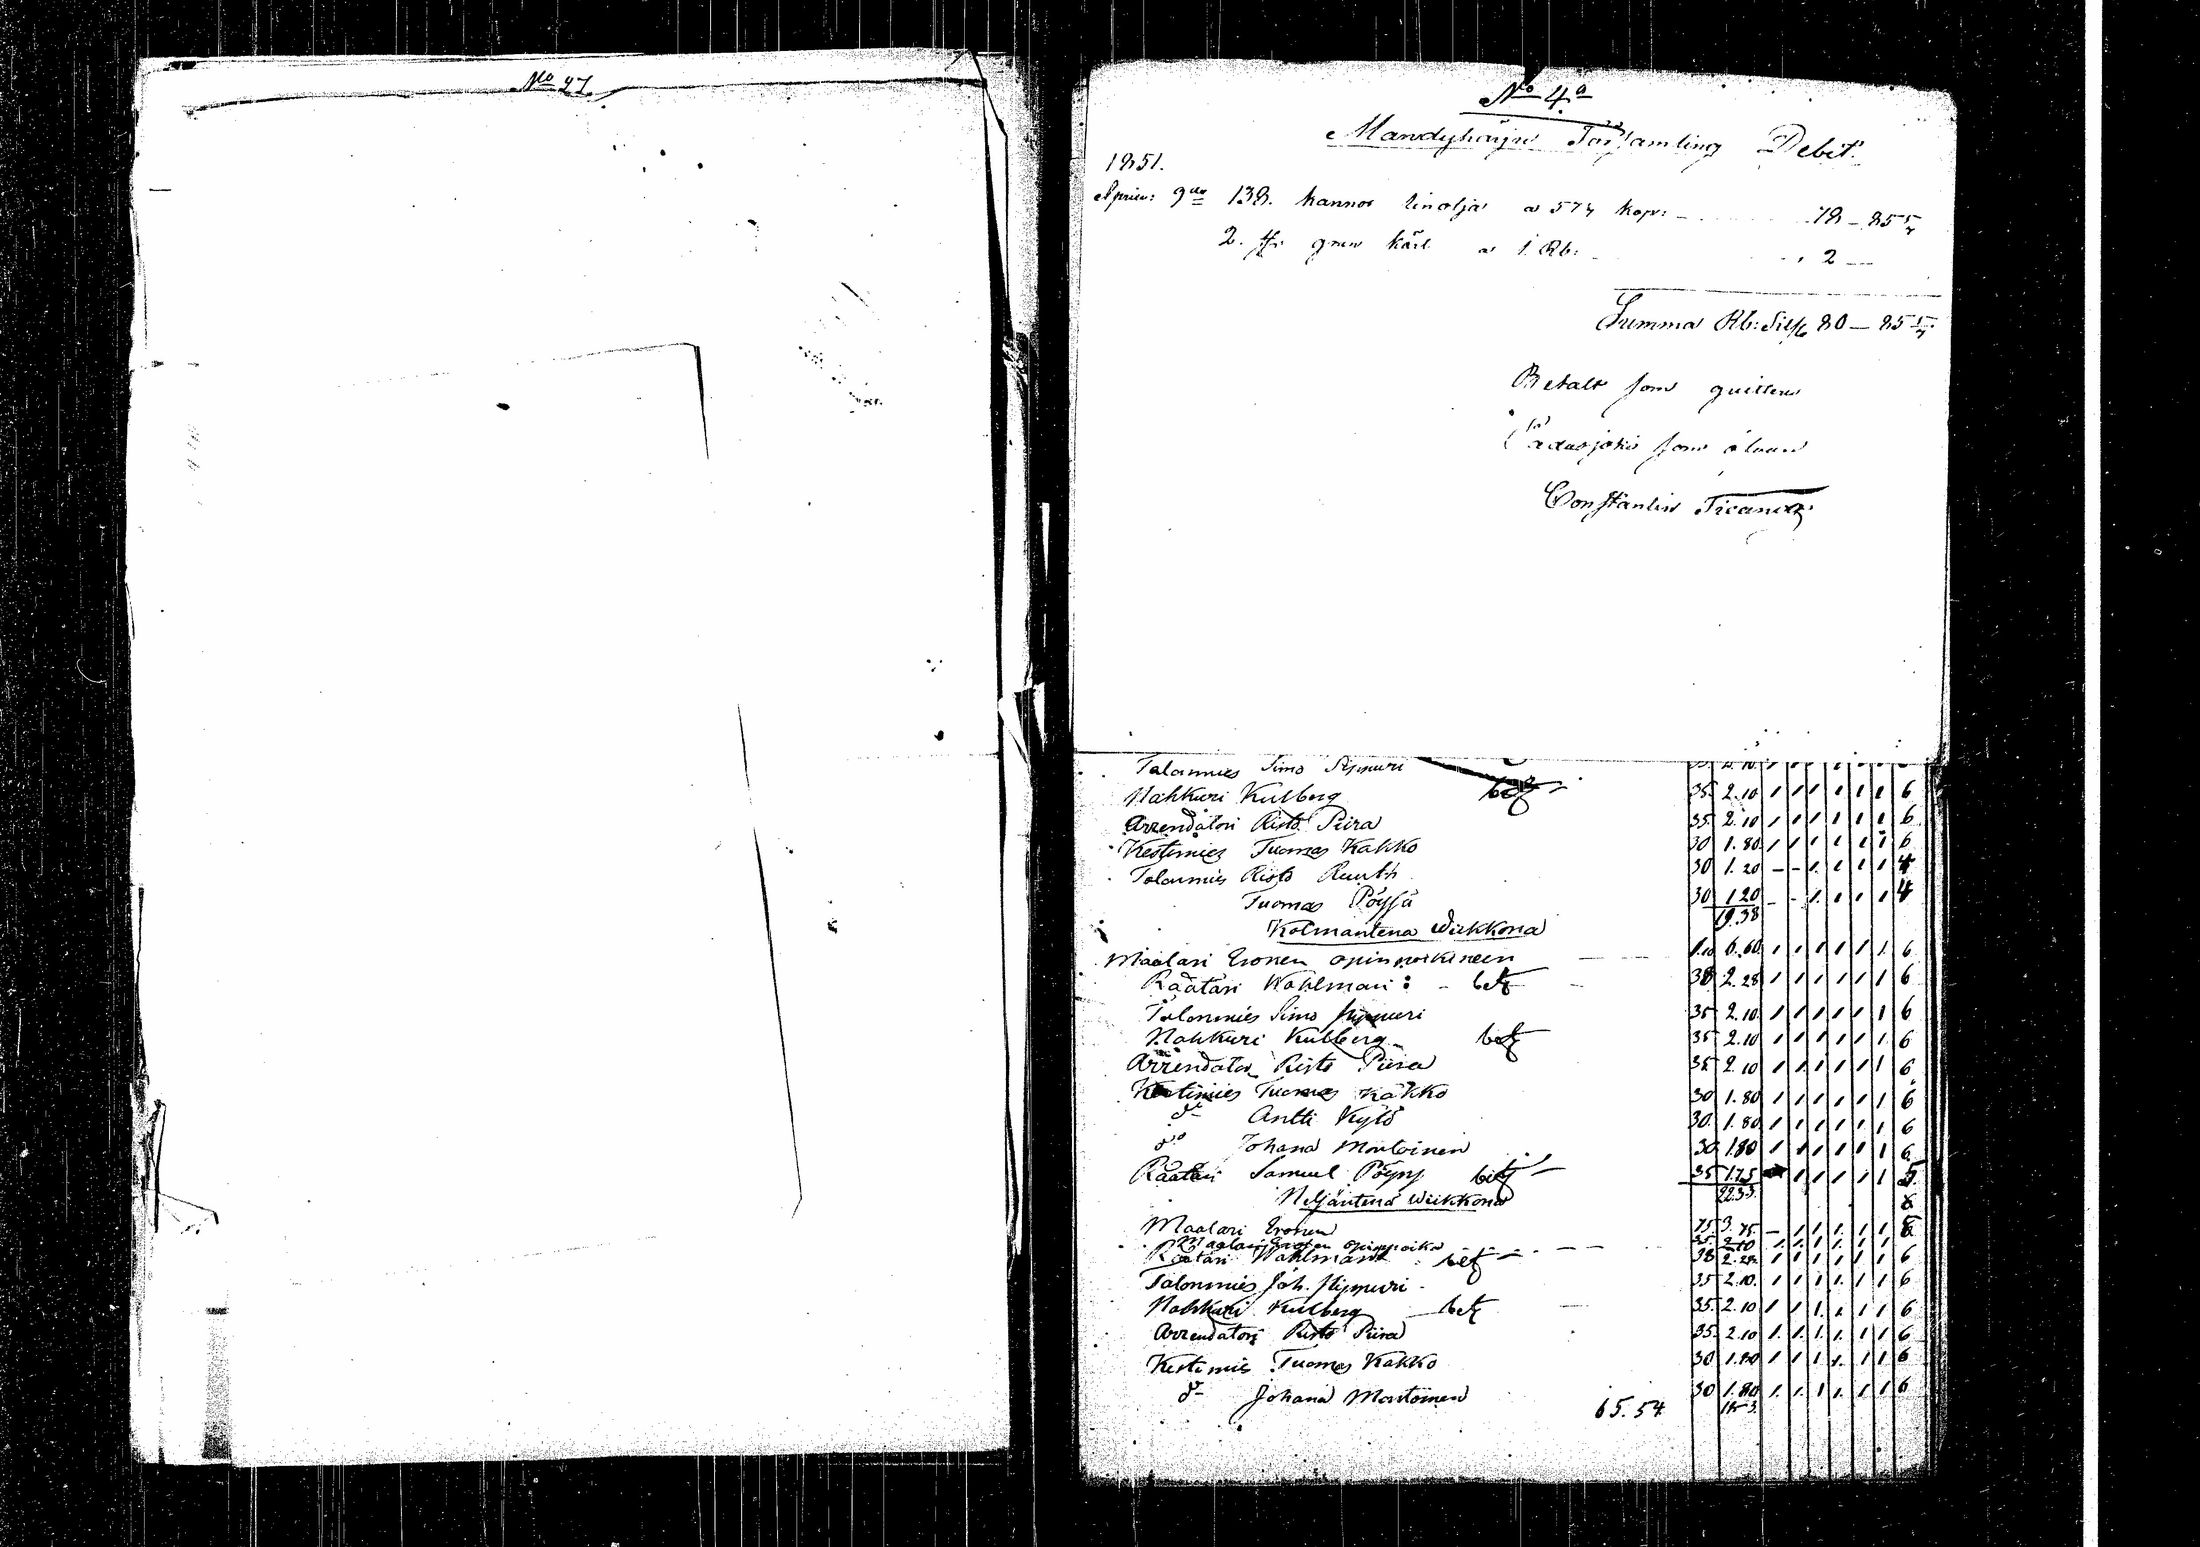 No 27.
No 4.a
Mandyharju Församling Debit.
1851.
April: 9de 138. kannor linolja a 57 1/7 kop: 78 - 85 5/7
2. st: käril a 1. Rb: 2 —
Summa Rb: Silfr 80 — 85 5/7
Betalt som quitteras
som ofvan
Constantin
Talonmies Simo Sippuri 35. 2.10
Nahkuri Kulberg bet 35. 2.10 1 1 1 1 1 1 6
Arrendatori Risto Piira 35. 2.10 1 1 1 1 1 1 6
Kestimies Tuomas Kakko 30 1.80 1 1 1 1 1 1 6
Talonmies Risto Ruuth 30 1.20 - - 1 1 1 1 4
Tuomas Pöyssä 30 1.20 - - 1 1 1 1 4
19.38
Kolmantena Wiikkona
Maalari Eronen opinpoikineen 1.10 6.60 1 1 1 1 1 1 6
Räätäri Wahlman: - bet 38 2.28 1 1 1 1 1 1 6
Talonmies Simo Sippuri 35 2.10 1 1 1 1 1 1 6
Nahkuri Kulberg bet 35 2.10 1 1 1 1 1 1 6
Arrendator Risto Piira 35 2.10 1 1 1 1 1 1 6
Kestimies Tuomas Kakko 30 1.80 1 1 1 1 1 1 6
do Antti Kylö 30. 1.80 1 1 1 1 1 1 6
do Johana Montoinen 30 1.80 1 1 1 1 1 1 6
Räätäri Samuel Pöyry bet 35 1.75 1 1 1 1 1 5
22.33
Neljäntenä Wiikkona
Maalari Eronen 75 3.75 - 1 1 1 1 1 5
Maalari Erosen opinpoika 35. 2.10 1 1 1 1 1 1 6
Räätäri Wahlman bet 38 2.28 1 1 1 1 1 1 6
Talonmies Joh. Sippuri 35 2.10. 1 1 1 1 1 1 6
Nahkuri Kulberg bet 35. 2.10 1 1 1 1 1 1 6
Arrendatori Risto Piira 35. 2.10 1 1 1 1 1 1 6
Kestimies Tuomas Kakko 30 1.80 1 1 1 1 1 1 6
do Johana Montoinen 30 1.80 1 1 1 1 1 1 6
65.54